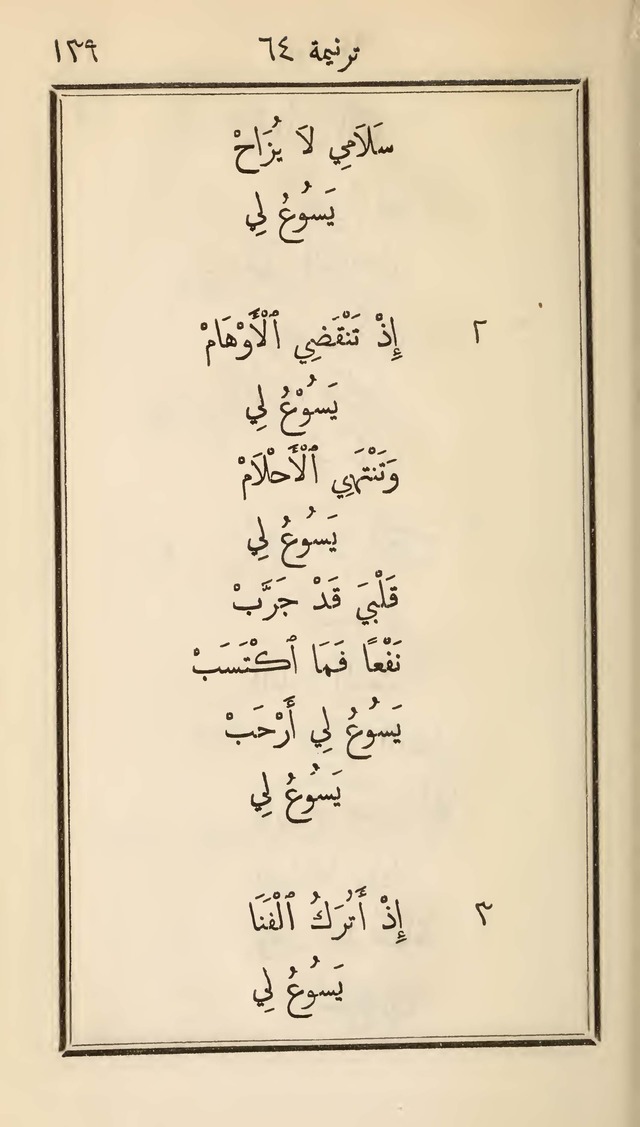 ترنيمة ٦٤ ١٣٩
سَلَامِي لَا يُزَاحْ
يَسُوعُ لِي
٢ إِذْ تَنْقَضِي ٱلْأَوْهَامْ
يَسُوْعُ لِي
وَتَنْتَهِي ٱلْأَحْلَامْ
يَسُوعُ لِي
قَلْبِيَ قَدْ جَرَّبْ
نَفْعًا فَمَا ٱكْتَسَبْ
يَسُوعُ لِي أَرْحَبْ
يَسُوعُ لِي
٣ إِذْ أَتْرُكُ ٱلْفَنَا
يَسُوعُ لِي